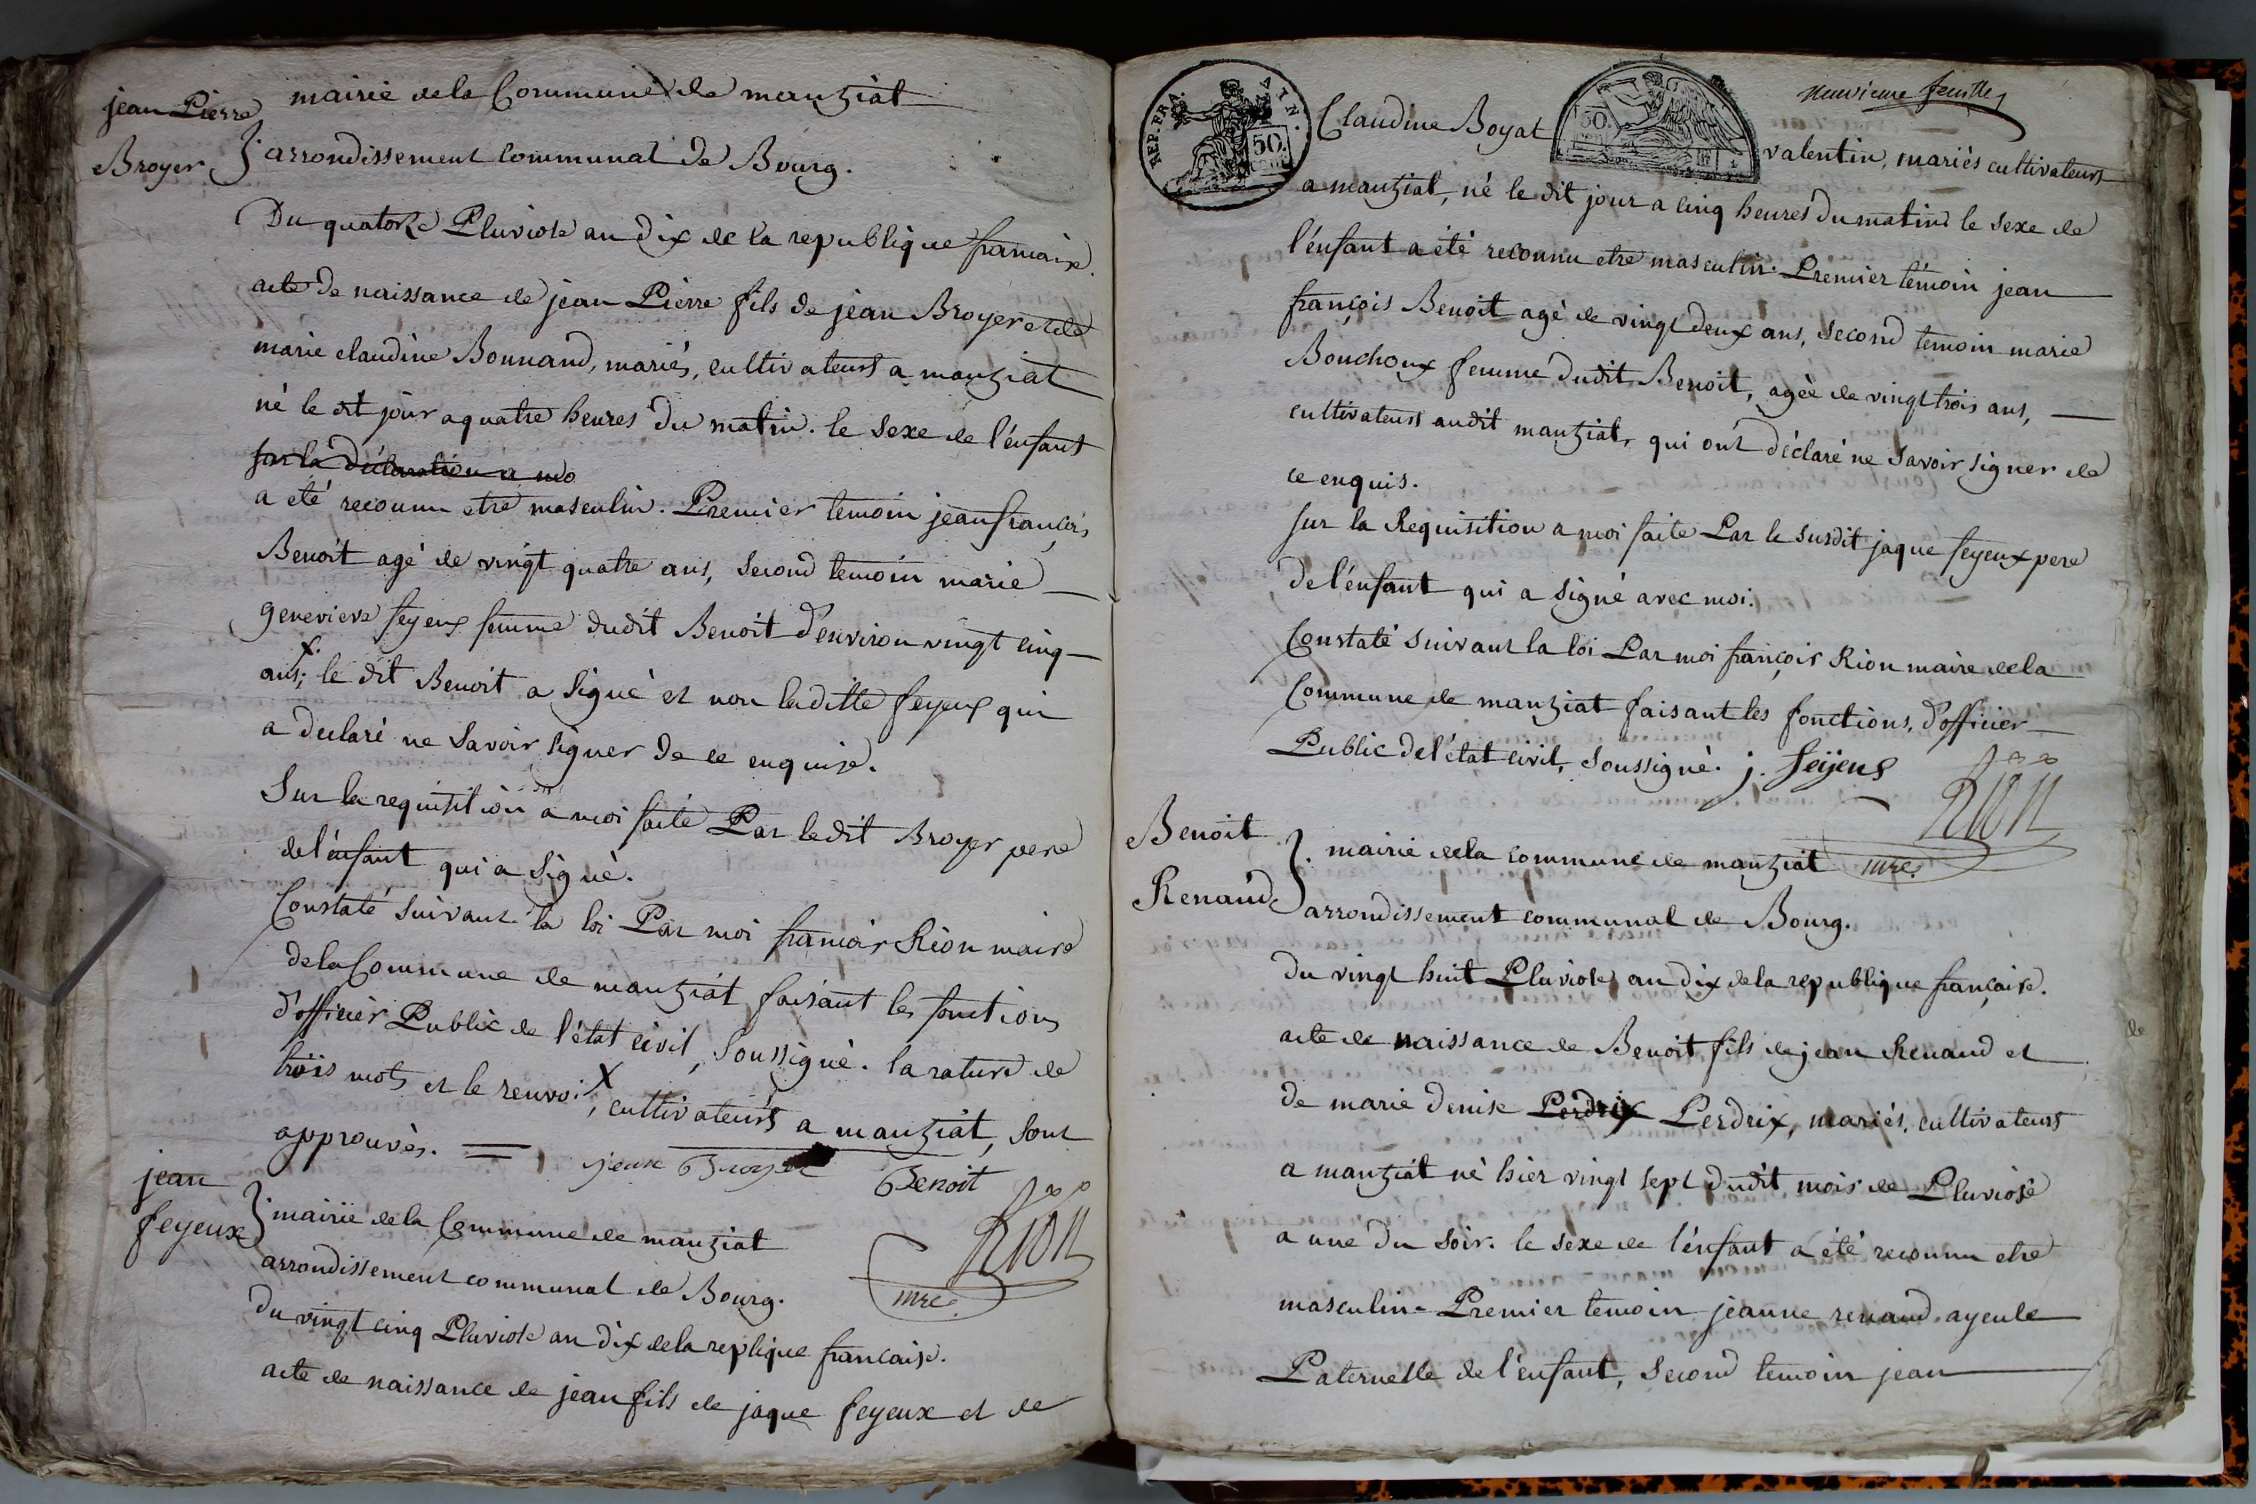 jean Pierre
Broyer
mairie de la Commune de manziat
arrondissement communal de Bourg.
Du quatorze Pluviose an dix de la republique francaise.
acte de naissance de jean Pierre fils de jean Broyer et de
marie claudine Bonnand, mariés, cultivateurs a manziat
né le dit jour a quatre heures du matin. le sexe de l'enfant
sur la déclaration a mo
a été reconnu etre masculin. Premier temoin jean françois
Benoit agé de vingt quatre ans, second temoin marie
genevieve feyeux femme dudit Benoit d'environ vingt cinq
ans; x le dit Benoit a signé et non laditte feyeux qui
a declaré ne savoir signer de ce enquise.
Sur la requisition a moi faite Par ledit Broyer pere
de l'enfant qui a signé.
Constaté suivant la loi Par moi francois Rion maire
de la Commune de manziat faisant les fonctions
d'officier Public de l'état civil, soussigné. la rature de
trois mots et le renvoi x, cultivateurs a manziat, sont
approuvés. jean Broyer Benoit
Rion
mre.
jean
feyeux
mairie de la Commune de manziat
arrondissement communal de Bourg.
du vingt cinq Pluviose an dix de la replique francaise.
acte de naissance de jean fils de jaque feyeux et de
REP. FRA. AIN.
50.
50.
neuvieme feuille
Claudine Boyat valentin, mariés cultivateurs
a manziat, né le dit jour a cinq heures du matin le sexe de
l'énfant a été reconnu etre masculin. Premier témoin jean
françois Benoit agé de vingt deux ans, second temoin marie
Bouchoux femme dudit Benoit, agée de vingt trois ans,
cultivateurs audit manziat, qui ont déclaré ne savoir signer de
ce enquis.
sur la Requisition a moi faite Par le susdit jaque feyeux pere
de l'énfant qui a signé avec moi.
Constaté suivant la loi Par moi françois Rion maire de la
Commune de manziat faisant les fonctions, d'officier
Public de l'état civil, soussigné. j. feijeux
Rion
mre.
Benoit
Renaud
mairie de la commune de manziat
arrondissement communal de Bourg.
du vingt huit Pluviose an dix de la republique française.
acte de naissance de Benoit, fils de jean Renaud et
de marie denise Perdrix Perdrix, mariés, cultivateurs
a manziat né hier vingt sept dudit mois de Pluviose
a une du soir. le sexe de l'énfant a été reconnu etre
masculin. Premier temoin jeanne renaud, ayeule
Paternelle de l'enfant, second temoin jean